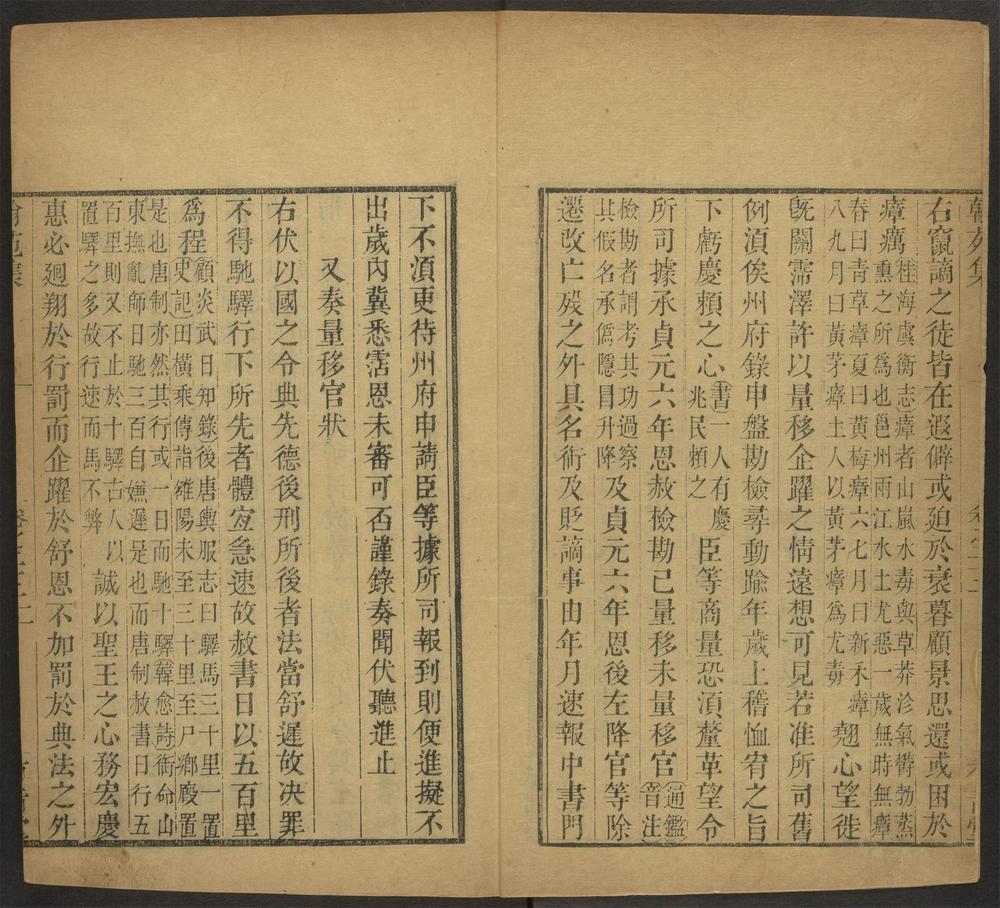 右竄謫之徒皆在遐僻或迫於衰暮顧景思還或困於
瘴癘桂海虞衡志瘴者山嵐水毒與草莽沴氣鬱勃蒸
熏之所爲也邕州兩江水土尤惡一歲無時無瘴
春曰青草瘴夏曰黃梅瘴六七月曰新禾瘴
八九月曰黃茅瘴土人以黃茅瘴爲尤毒翹心望徙
旣關霈澤許以量移企躍之情遠想可見若准所司舊
例湏俟州府錄申盤勘檢尋動踰年歲上稽恤宥之旨
下虧慶賴之心書一人有慶
兆民賴之臣等商量恐湏釐革望令
所司據承貞元六年恩赦檢勘已量移未量移官通鑑
音注
檢勘者謂考其功過察
其假名承僞隱冒升降及貞元六年恩後左降官等除
遷改亡歿之外具名銜及貶謫事由年月速報中書門
下不湏更待州府申請臣等據所司報到則便進擬不
出歲內冀悉霑恩未審可否謹錄奏聞伏聽進止
又奏量移官狀
右伏以國之令典先德後刑所後者法當舒遲故决罪
不得馳驛行下所先者體宐急速故赦書日以五百里
爲程顧炎武日知錄後唐輿服志曰驛馬三十里一置
史記田橫乘傳詣雒陽未至三十里至尸鄉廄置
是也唐制亦然其行或一日而馳十驛韓愈詩銜命山
東撫亂師日馳三百自嫌遲是也而唐制赦書日行五
百里則又不止於十驛古人以
置驛之多故行速而馬不弊誠以聖王之心務宏慶
惠必廻翔於行罰而企躍於舒恩不加罰於典法之外